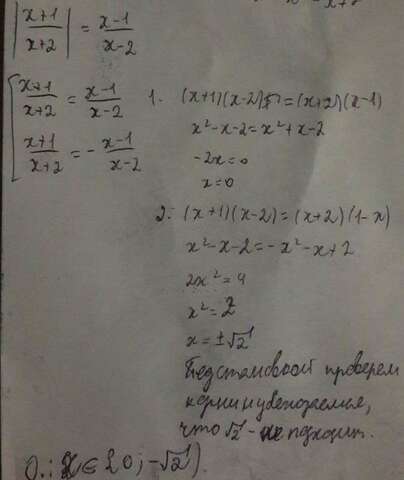 |x+1/x+2| = x-1/x-2
[ x+1/x+2 = x-1/x-2
x+1/x+2 = - x-1/x-2
1. (x+1)(x-2) = (x+2)(x-1)
x²-x-2=x²+x-2
-2x=0
x=0
2. (x+1)(x-2)=(x+2)(1-x)
x²-x-2=-x²-x+2
2x²=4
x²=2
x=±√2
Подстановкой проверем
корни и убеждаемся,
что √2 - не подходит.
О.: x∈{0; -√2}.